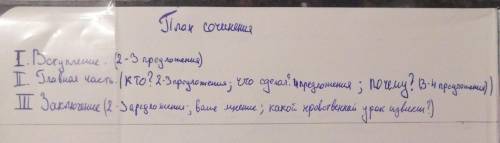 План сочинения
I. Вступление. (2-3 предложения)
II. Главная часть (КТО? 2-3 предложения; что сделал? 4 предложения; почему? (3-4 предложения))
III Заключение (2-3 предложения; ваше мнение; какой нравственный урок извлекли?)